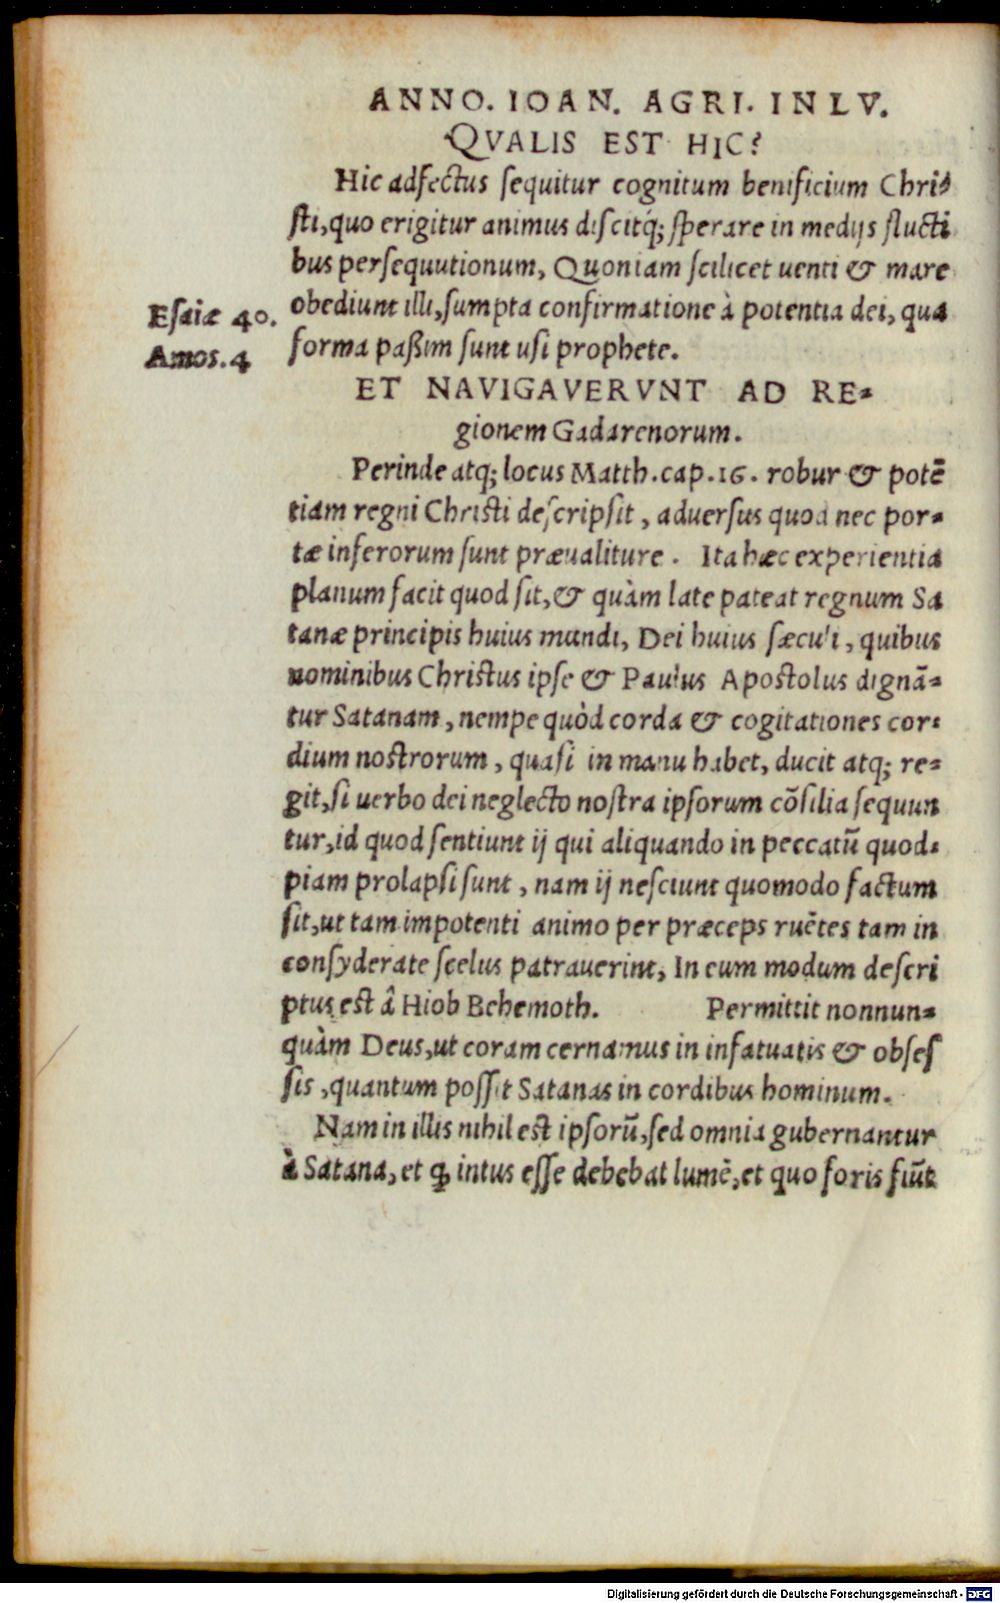 ANNO. IOAN. AGRI. IN LV.
QVALIS EST HIC?
Hic adfectus sequitur cognitum benificium Chri⸗
sti, quo erigitur animus discitq́; sperare in medijs fluctí
bus persequutionum, Quoniam scilicet uenti & mare
Esaiæ 40. obediunt illi, sumpta confirmatione à potentia dei, qua
Amos. 4 forma paßim sunt usi prophete.
ET NAVIGAVERVNT AD RE⸗
gionem Gadarenorum.
Perinde atq; locus Matth. cap. 16. robur & potē
tiam regni Christi descripsit, aduersus quod nec por⸗
tæ inferorum sunt præualiture. Ita hæc experientia
planum facit quod sit, & quàm late pateat regnum Sa
tanæ principis huius mundi, Dei huius sæculi, quibus
nominibus Christus ipse & Paulus Apostolus dignā⸗
tur Satanam, nempe quòd corda & cogitationes cor⸗
dium nostrorum, quasi in manu habet, ducit atq; re⸗
git, si uerbo dei neglecto nostra ipsorum cōsilia sequun
tur, id quod sentiunt ij qui aliquando in peccatū quod⸗
piam prolapsi sunt, nam ij nesciunt quomodo factum
sit, ut tam impotenti animo per præceps ruētes tam in
consyderate scelus patrauerint, In eum modum descri
ptus est â Hiob Behemoth. Permittit nonnun⸗
quàm Deus, ut coram cernamus in infatuatis & obses
sis, quantum possit Satanas in cordibus hominum.
Nam in illis nihil est ipsorū, sed omnia gubernantur
à Satana, et ꝙ intus esse debebat lumē, et quo foris fiūt
Digitalisierung gefördert durch die Deutsche Forschungsgemeinschaft - DFG